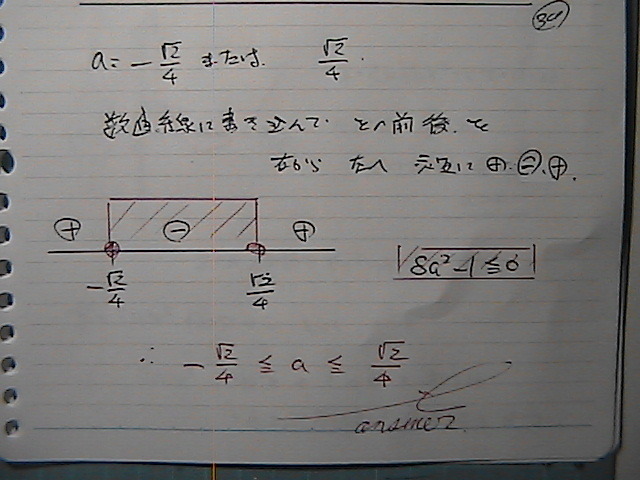 a = -√2/4 または √2/4.
数直線に書き込んで その前後を
右から 左へ 交互に ⊕.⊖.⊕.
⊕ ⊖ ⊕
-√2/4 √2/4
8a²-1≦0
∴ -√2/4 ≦ a ≦ √2/4
answer